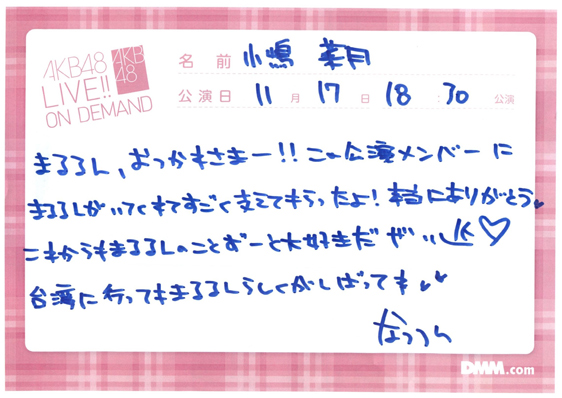 AKB48
LIVE!!
ON DEMAND
AKB
48
名前 小嶋 菜月
公演日 11月17日 18:30 公演
まるるん、おつかれさまー!!この公演メンバーに
まるるんがいてくれてすごく支えてもらったよ!本当にありがとう♥
これからもまるるんのことずーと大好きだぜぃ♡
台湾に行ってもまるるんらしくがんばってね♥♥
なっつん
DMM.com